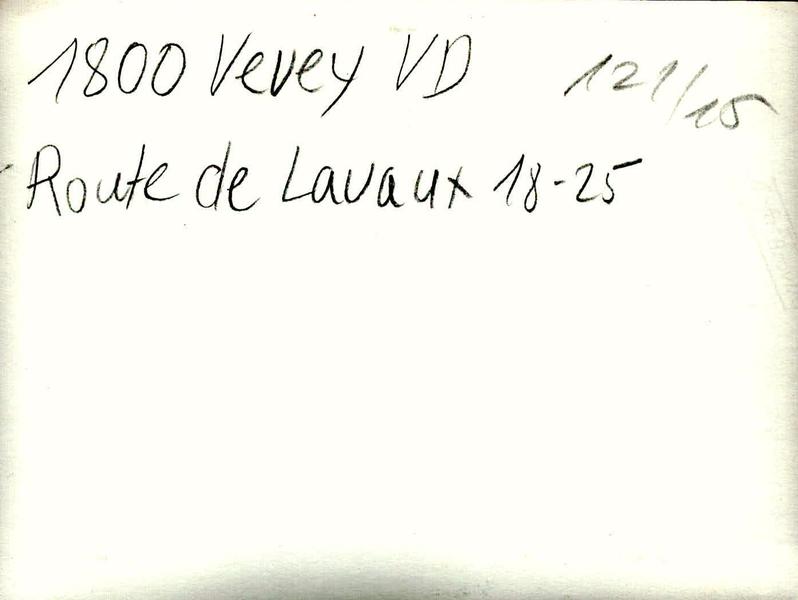 1800 Vevey VD 121/15
Route de Lavaux 18-25